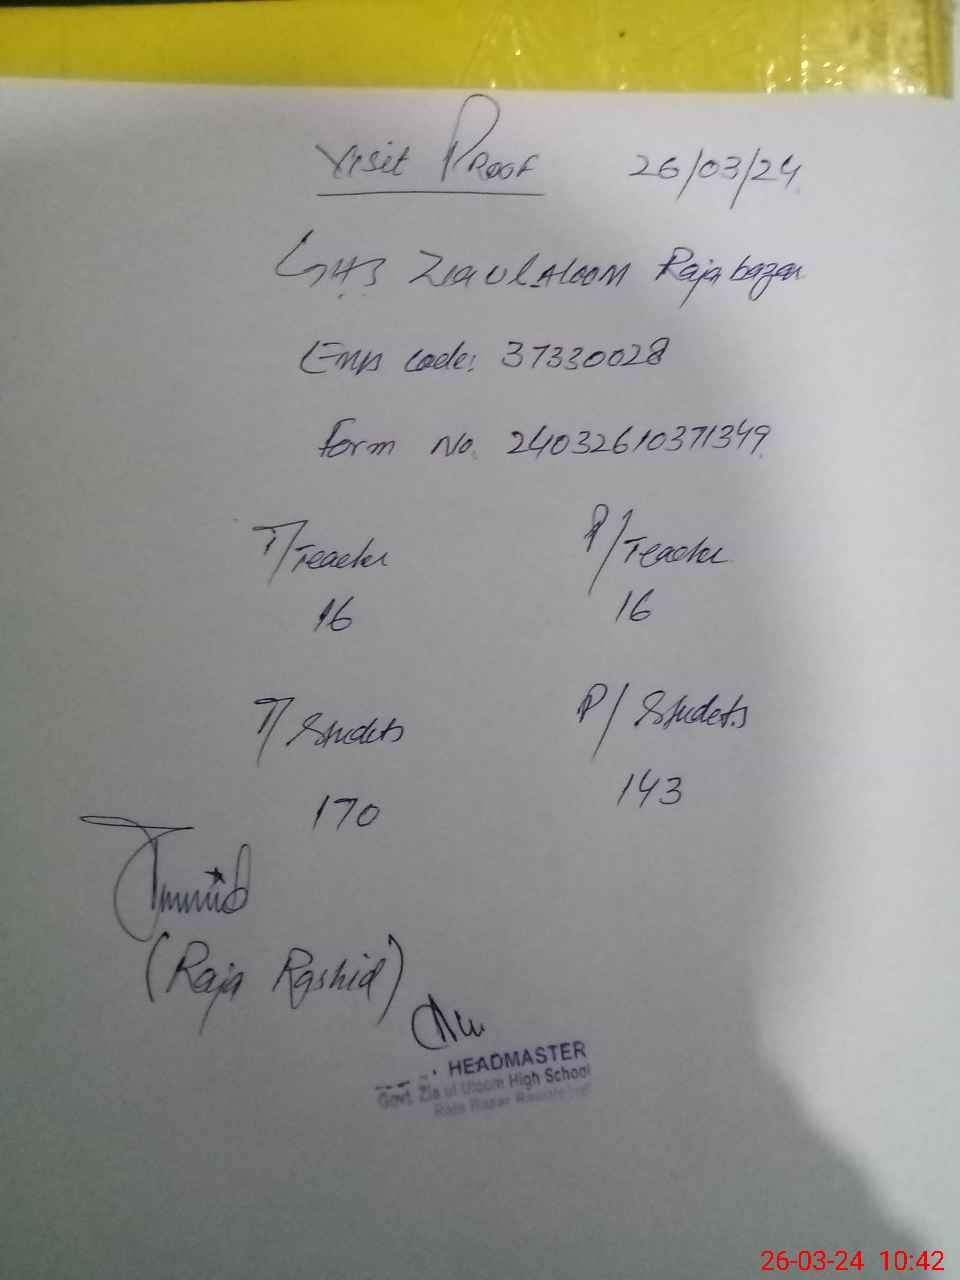 Visit Proof 26/03/24
GHS Zia ul Aloom Raja bazar
Emis code: 37330028
Form No. 24032610371349
T/Teacher P/Teacher
16 16
T/Students P/Students
170 143
(Raja Rashid)
HEADMASTER
Govt. Zia ul Uloom High School
Raja Bazar Rawalpindi
26-03-24 10:42